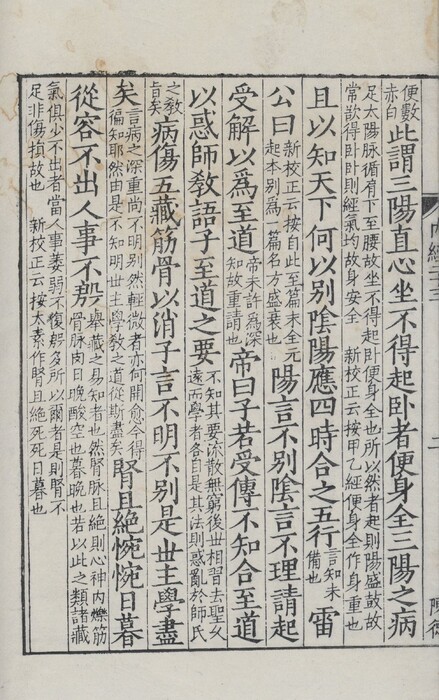 便數赤白此謂三陽直心坐不得起臥者便身全三陽之病
足太陽脉循肩下至腰故坐不得起臥便身全也所以然者起則陽盛鼓故
常欲得臥臥則經氣均故身安全 新校正云按甲乙經便身全作身重也
且以知天下何以別陰陽應四時合之五行言知未備也雷
公曰新校正云按自此至篇末全元起本别爲一篇名方盛衰也陽言不別陰言不理請起
受解以爲至道帝未許爲深知故重請也帝曰子若受傳不知合至道
以惑師敎語子至道之要不知其要流散無窮後世相習去聖久遠而學者各自是其法則惑亂於師氏
之敎旨矣病傷五藏筋骨以消子言不明不別是世主學盡
矣言病之深重尚不明别然輕微者亦何開愈令得徧知耶然由是不知明世主學敎之道從斯盡矣腎且絕惋惋日暮
從容不出人事不殷舉藏之易知者也然腎脉且絶則心神内爍筋骨脉肉日晚酸空也暮晚也若以此之類諸藏
氣俱少不出者當人事萎弱不復殷多所以爾者是則腎不
足非傷損故也 新校正云按太素作腎且絶死死日暮也